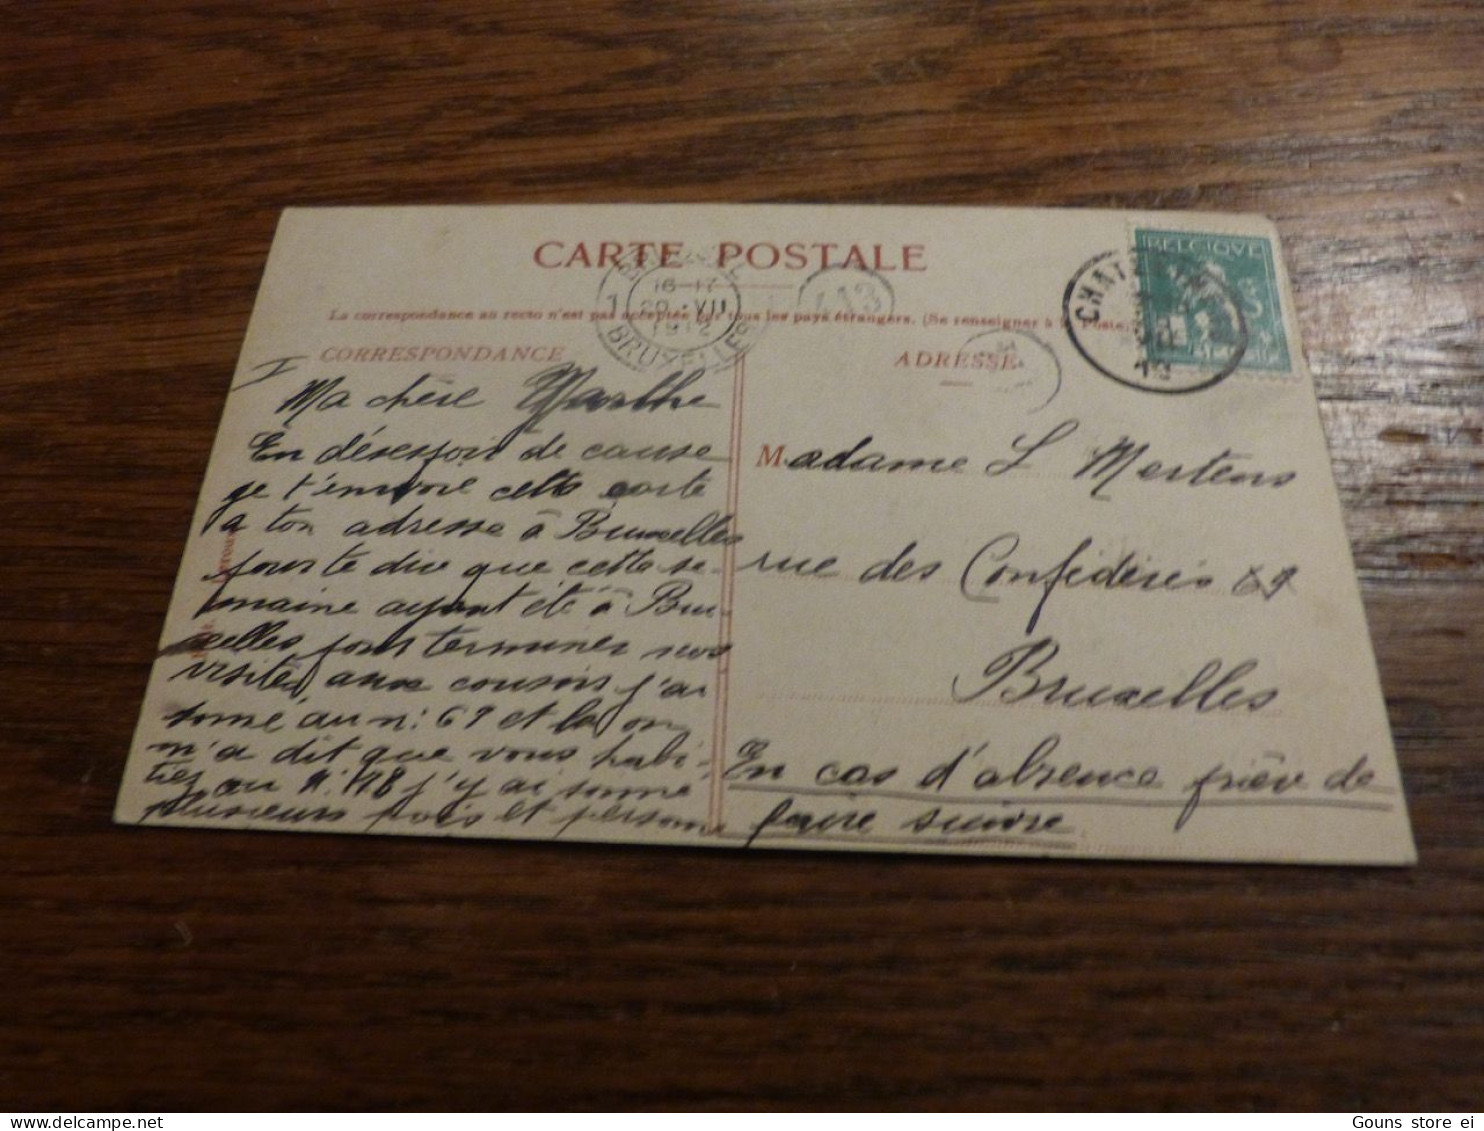 CARTE POSTALE
La correspondance au recto n'est pas acceptée par tous les pays étrangers. (Se renseigner à la Poste)
CORRESPONDANCE
ADRESSE
BRUXELLES
16-17
20 VII
1912
BRUXELLES
113
BELGIQUE
I
Ma chère Marthe
En désespoir de cause
je t'envoie cette carte
a ton adresse à Bruxelles
pour te dire que cette se-
maine ayant été à Bru-
xelles pour terminer nos
visites aux cousins j'ai
sonné au n: 69 et là on
m'a dit que vous habi-
tiez au N: 118 j'y ai sonné
plusieurs fois et personne
Madame L Mertens
rue des Confédérés 69
Bruxelles
En cas d'absence prière de
faire suivre
Gouns store ei